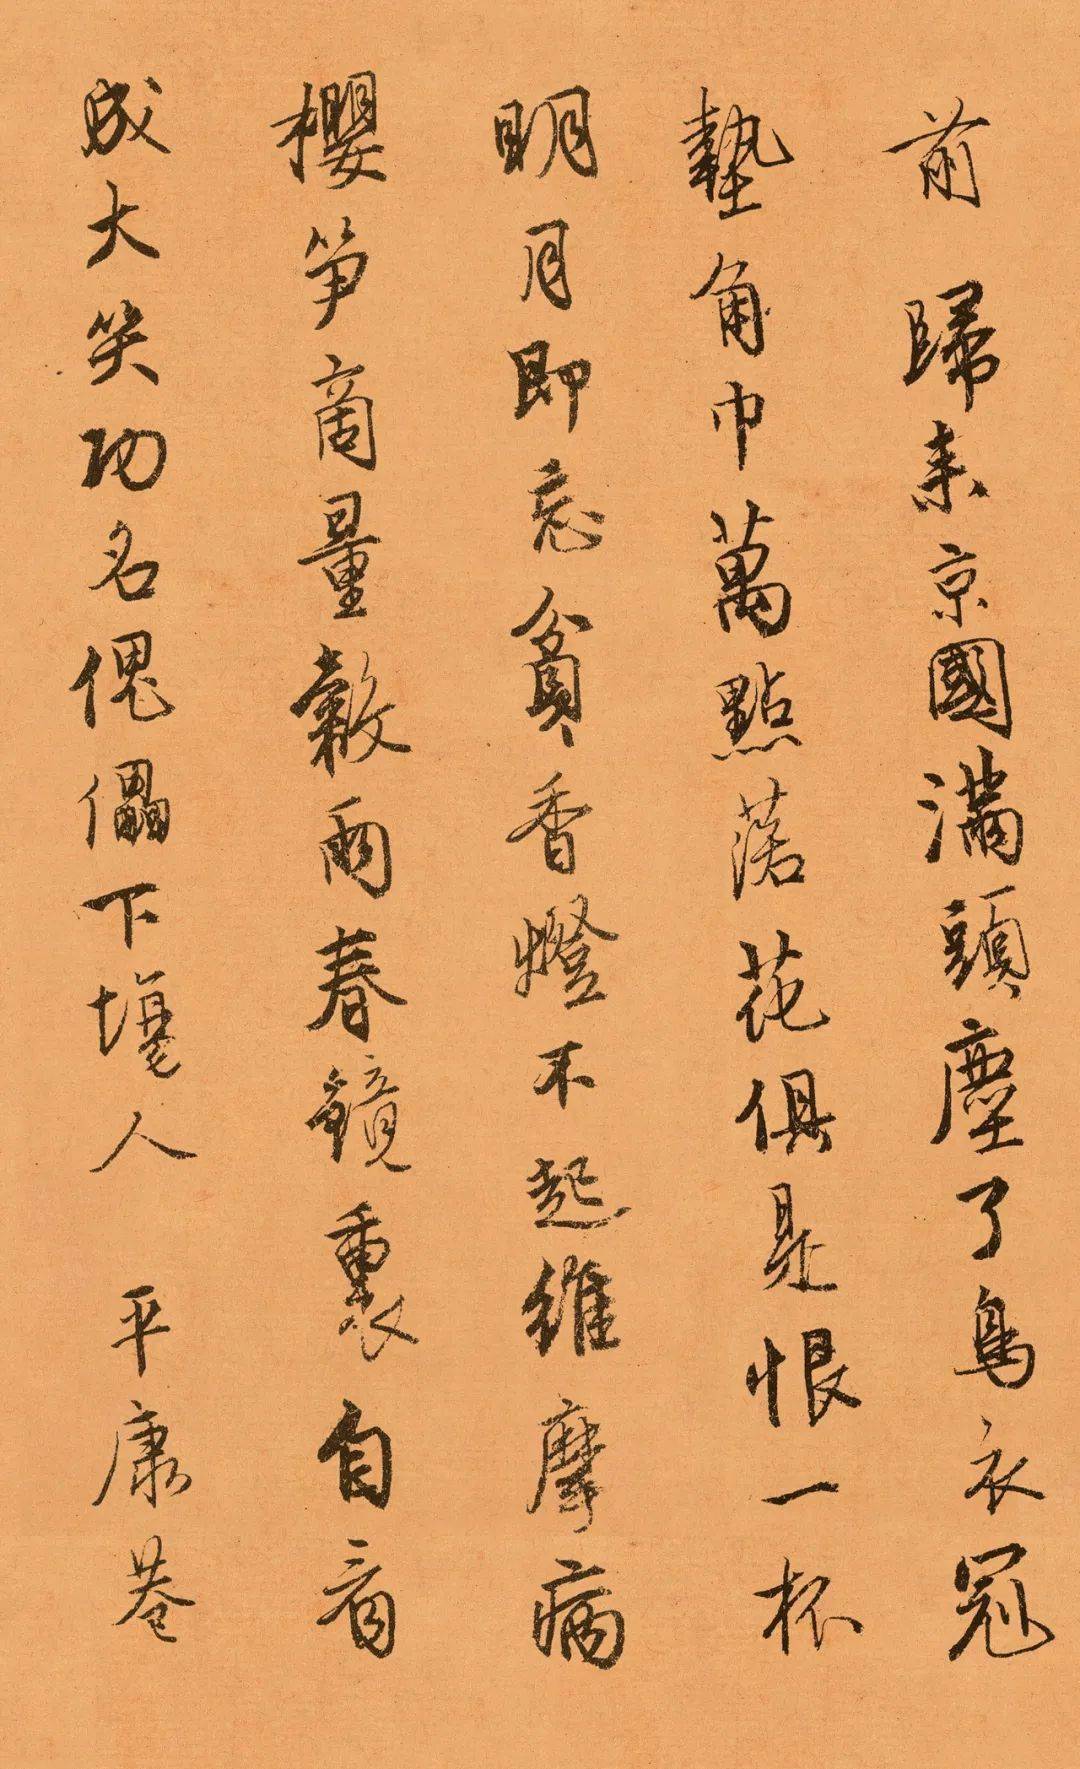 前 歸来京國滿頭塵了鳥衣冠
墊角巾萬點落花俱是恨一杯
明月即忘貧香燈不起維摩病
櫻筍商量穀雨春鏡裏自看
成大笑功名傀儡下塲人 平康巷